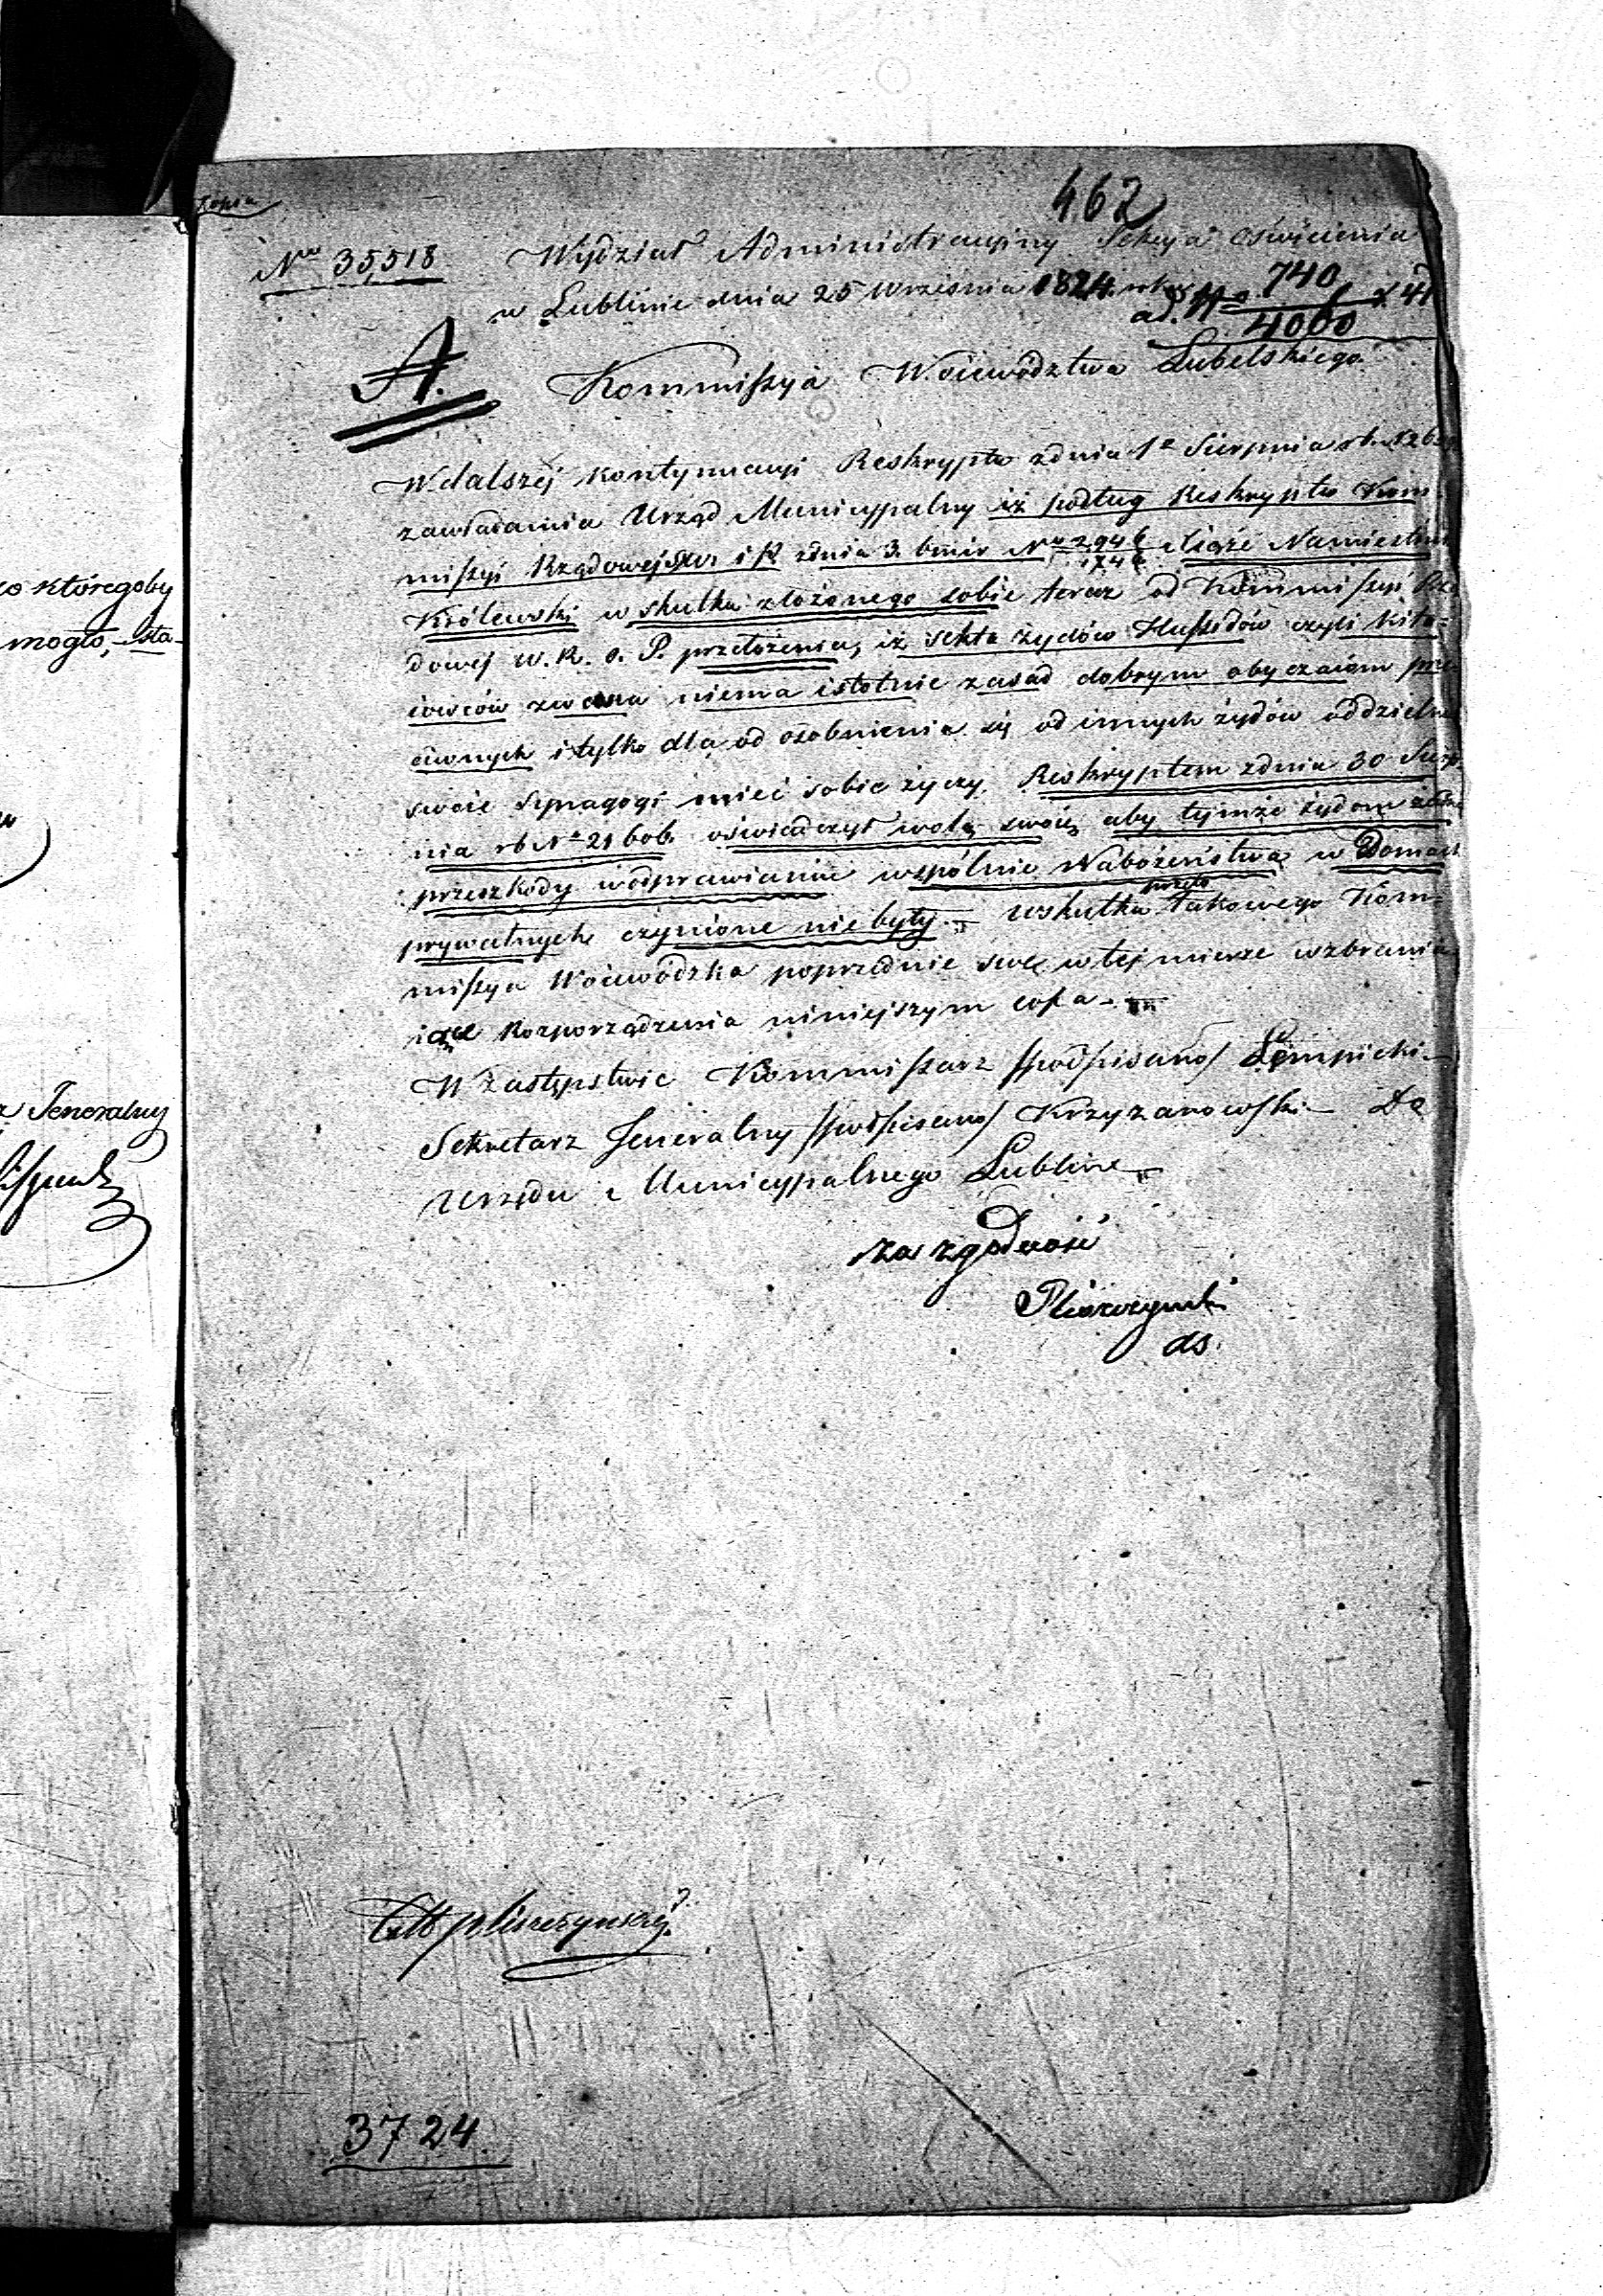 Kopia
462
No 35,518 Wydział Administracyiny Sekcya Oświecenia
w Lublinie dnia 25 Września 1824 roku
ad. No 740
4000
A.
Kommissya Województwa Lubelskiego
W dalszéj kontynuacyi Reskryptu z dnia 1o Sierpnia rb. N
zawiadamia Urząd Municypalny iż podług Reskryptu Kom
missyi Rządowej i P z dnia 3. bm i r No 2946 Xiąże Namiestnik
1746
Królewski w skutku złożonego sobie teraz od Kommissyi Rzą
dowej W. R. O. P. przełożenia, iż sekta żydów Hussydów czyli Kita-
iowców zwana niema istotnie zasad dobrym obyczaiom prze
ciwnych i tylko dla od osobnienia się od innych żydów oddzielne
swoie Synagogi mieć sobie życzy. Reskryptem z dnia 30 Sierp
nia rb No 21606. oświadczył wolą swoię aby tymże żydom żadne
przeszkody w odprawianiu wspólnie Nabożeństwa w Domach
prywatnych czynione nie były. — W skutku przeto takowego Kom-
missya Woiewódzka poprzednie swe w tej mierze wzbrania
iące Rozporządzenia niniejszym cofa. —
W Zastępstwie Kommissarz /podpisano/ Łempicki —
Sekretarz Jeneralny /podpisano/ Krzyzanowski — Do
Urzędu Municypalnego Lublina
za zgodność
Pliszczynski
ds.
Pliszczynski
3724
co któregoby
mogło, — sta-
Jeneralny